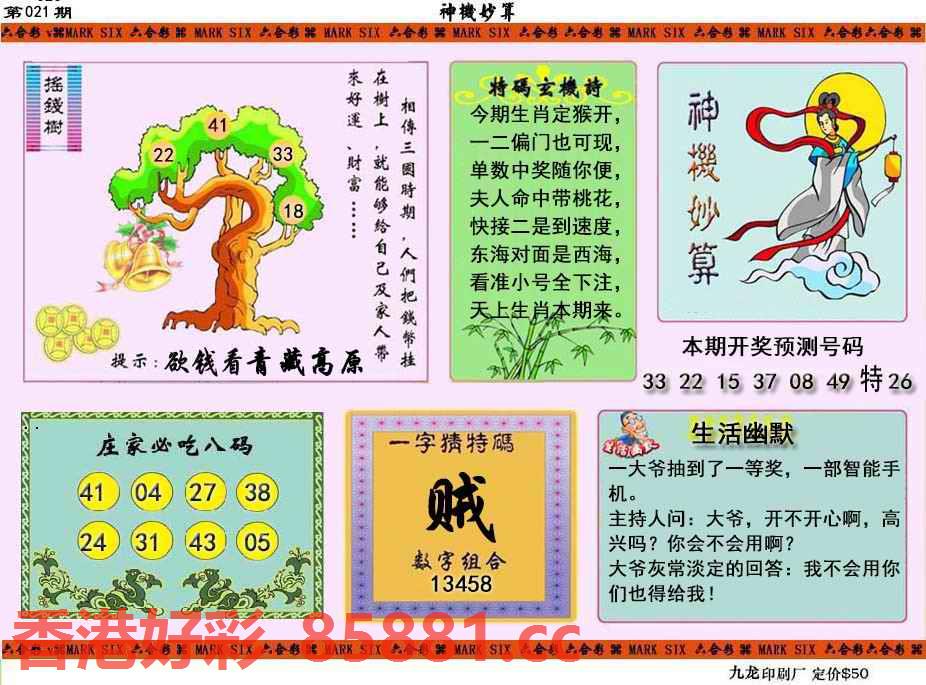 第021期
神機妙算
六合彩 MARK SIX 六合彩 MARK SIX 六合彩 MARK SIX 六合彩 MARK SIX 六合彩 六合彩 MARK SIX 六合彩 MARK SIX 六合彩 六合彩
搖錢樹
相傳三國時期，人們把錢幣挂
在樹上，就能够給自己及家人帶
來好運、財富……
41
22
33
18
提示：欲钱看青藏高原
特碼玄機詩
今期生肖定猴开，
一二偏门也可现，
单数中奖随你便，
夫人命中带桃花，
快接二是到速度，
东海对面是西海，
看准小号全下注，
天上生肖本期来。
神機妙算
本期开奖预测号码
33 22 15 37 08 49 特 26
庄家必吃八码
41 04 27 38
24 31 43 05
一字猜特碼
贼
数字组合
13458
生活幽默
生活幽默
一大爷抽到了一等奖，一部智能手
机。
主持人问：大爷，开不开心啊，高
兴吗？你会不会用啊？
大爷灰常淡定的回答：我不会用你
们也得给我！
香港好彩 85881.cc
六合彩 MARK SIX 六合彩 MARK SIX 六合彩 MARK SIX 六合彩 MARK SIX 六合彩 六合彩 MARK SIX 六合彩 MARK SIX 六合彩 六合彩
九龙印刷厂 定价$50